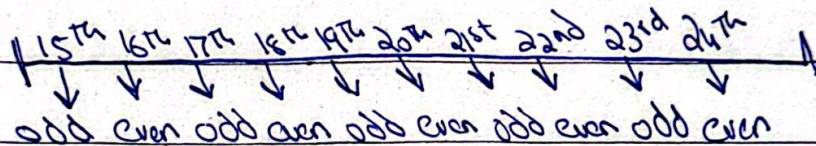 15th 16th 17th 18th 19th 20th 21st 22nd 23rd 24th
odd even odd even odd even odd even odd even